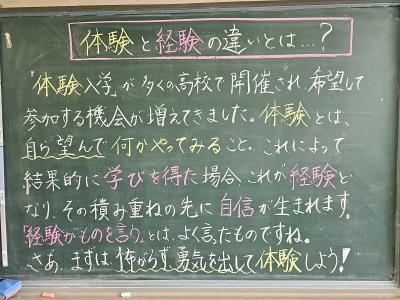 体験と経験の違いとは…？
「体験入学」が多くの高校で開催され、希望して
参加する機会が増えてきました。体験とは、
自ら望んで何かやってみること。これによって
結果的に学びを得た場合、これが経験と
なり、その積み重ねの先に自信が生まれます。
経験がものを言う。とは、よく言ったものですね。
さあ、まずは怖がらず、勇気を出して体験しよう！